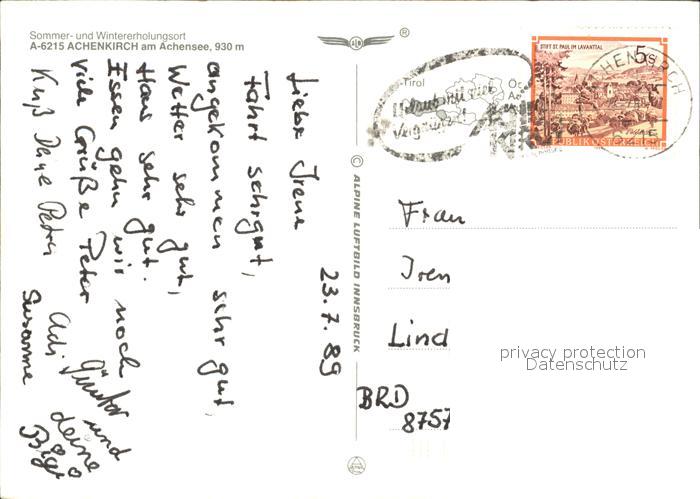 Sommer- und Wintererholungsort
A-6215 ACHENKIRCH am Achensee, 930 m
®
23.7.89
Liebe Irene
Fahrt sehr gut,
angekommen sehr gut,
Wetter sehr gut,
Haus sehr gut.
Essen gehn wir noch
viele Grüße Peter
Kuß Deine Petra
Adi Günter und
Susanne deine
© ALPINE LUFTBILD INNSBRUCK
-Tirol
Urlaub mit viel
Vergnügen
STIFT ST. PAUL IM LAVANTTAL
5S
REPUBLIK ÖSTERREICH
ACHENKIRCH
Frau
Iren
Lind
BRD
8757
privacy protection
Datenschutz